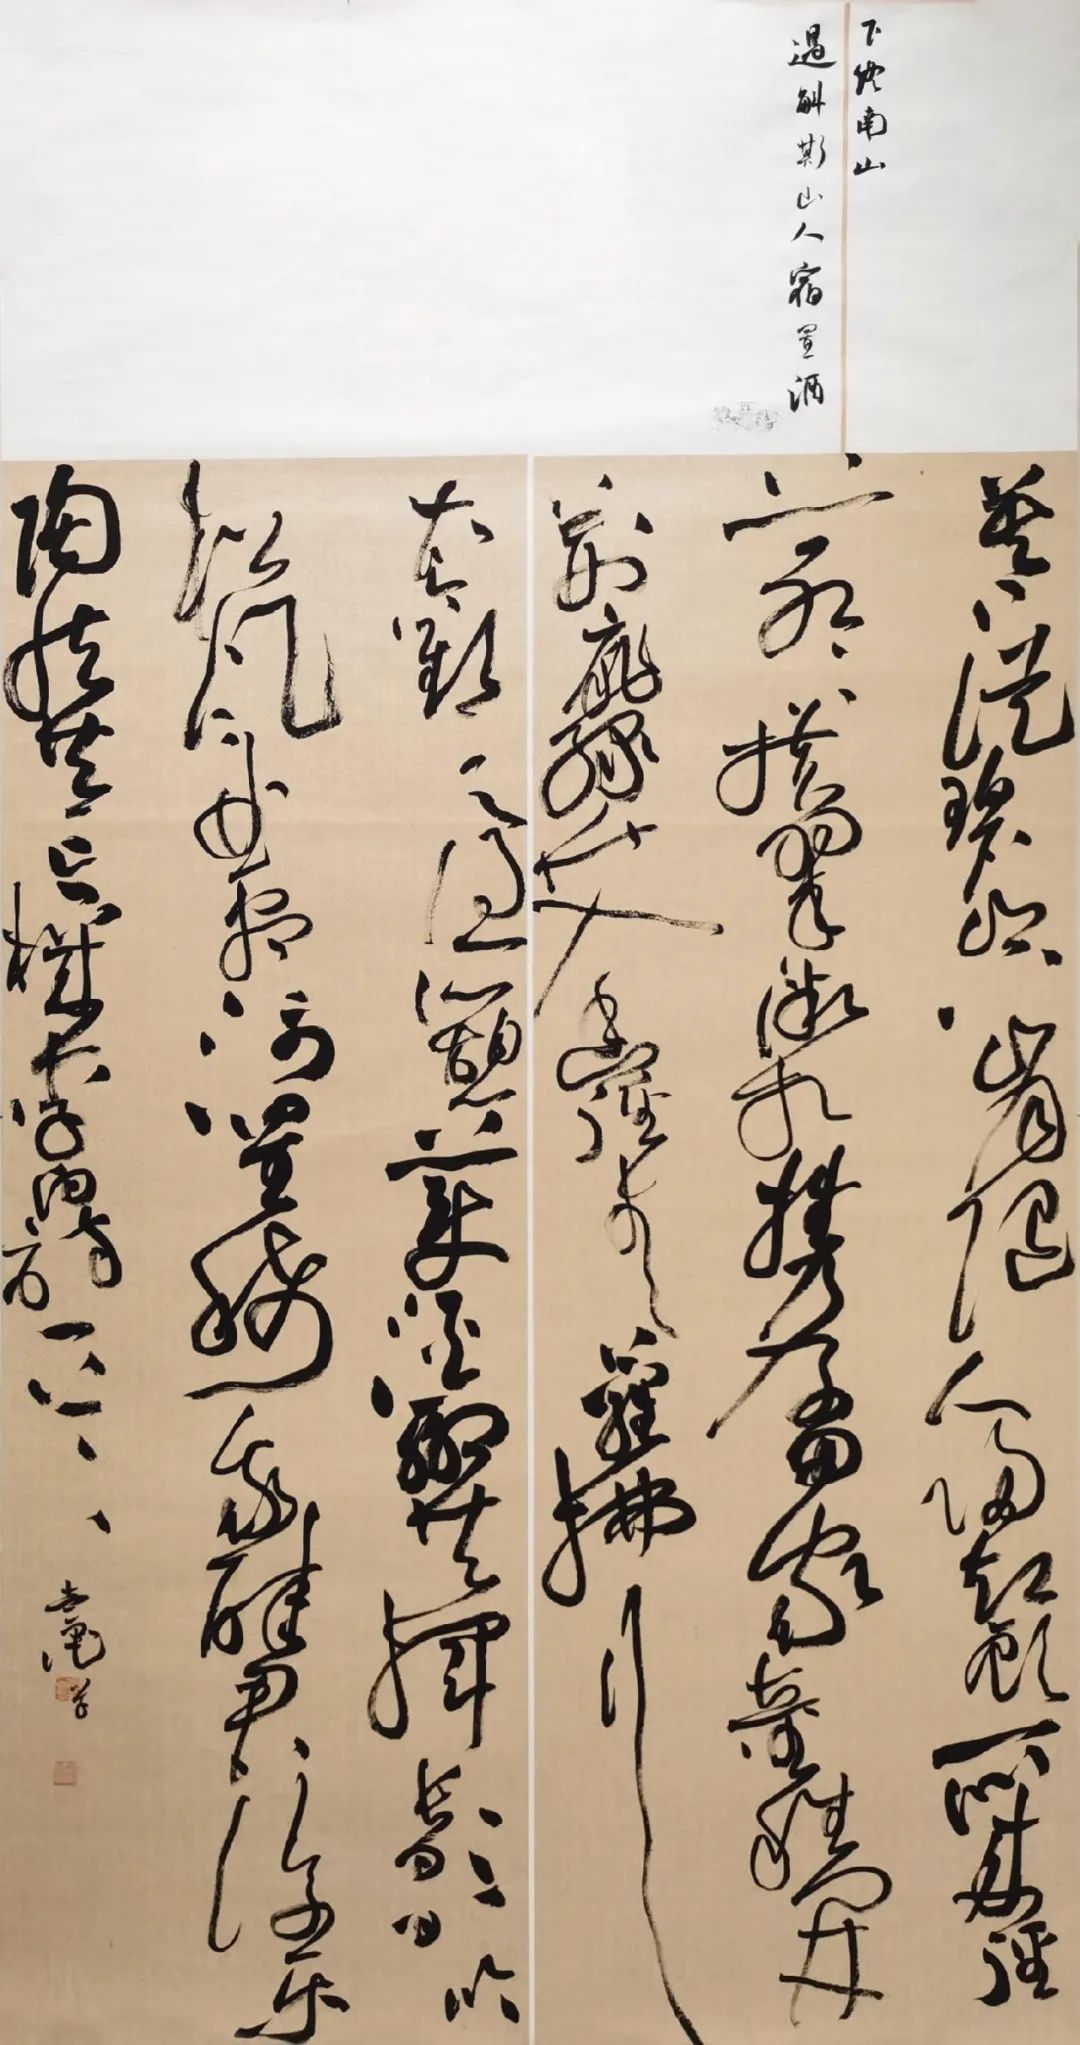 下終南山
過斛斯山人宿置酒
暮從碧山下山月隨人歸却顧所來徑
蒼蒼橫翠微相攜及田家童稚開
荊扉綠竹入幽徑青蘿拂行
衣歡言得所憩美酒聊共揮長歌吟
松風曲盡河星稀我醉君復樂
陶然共忘機